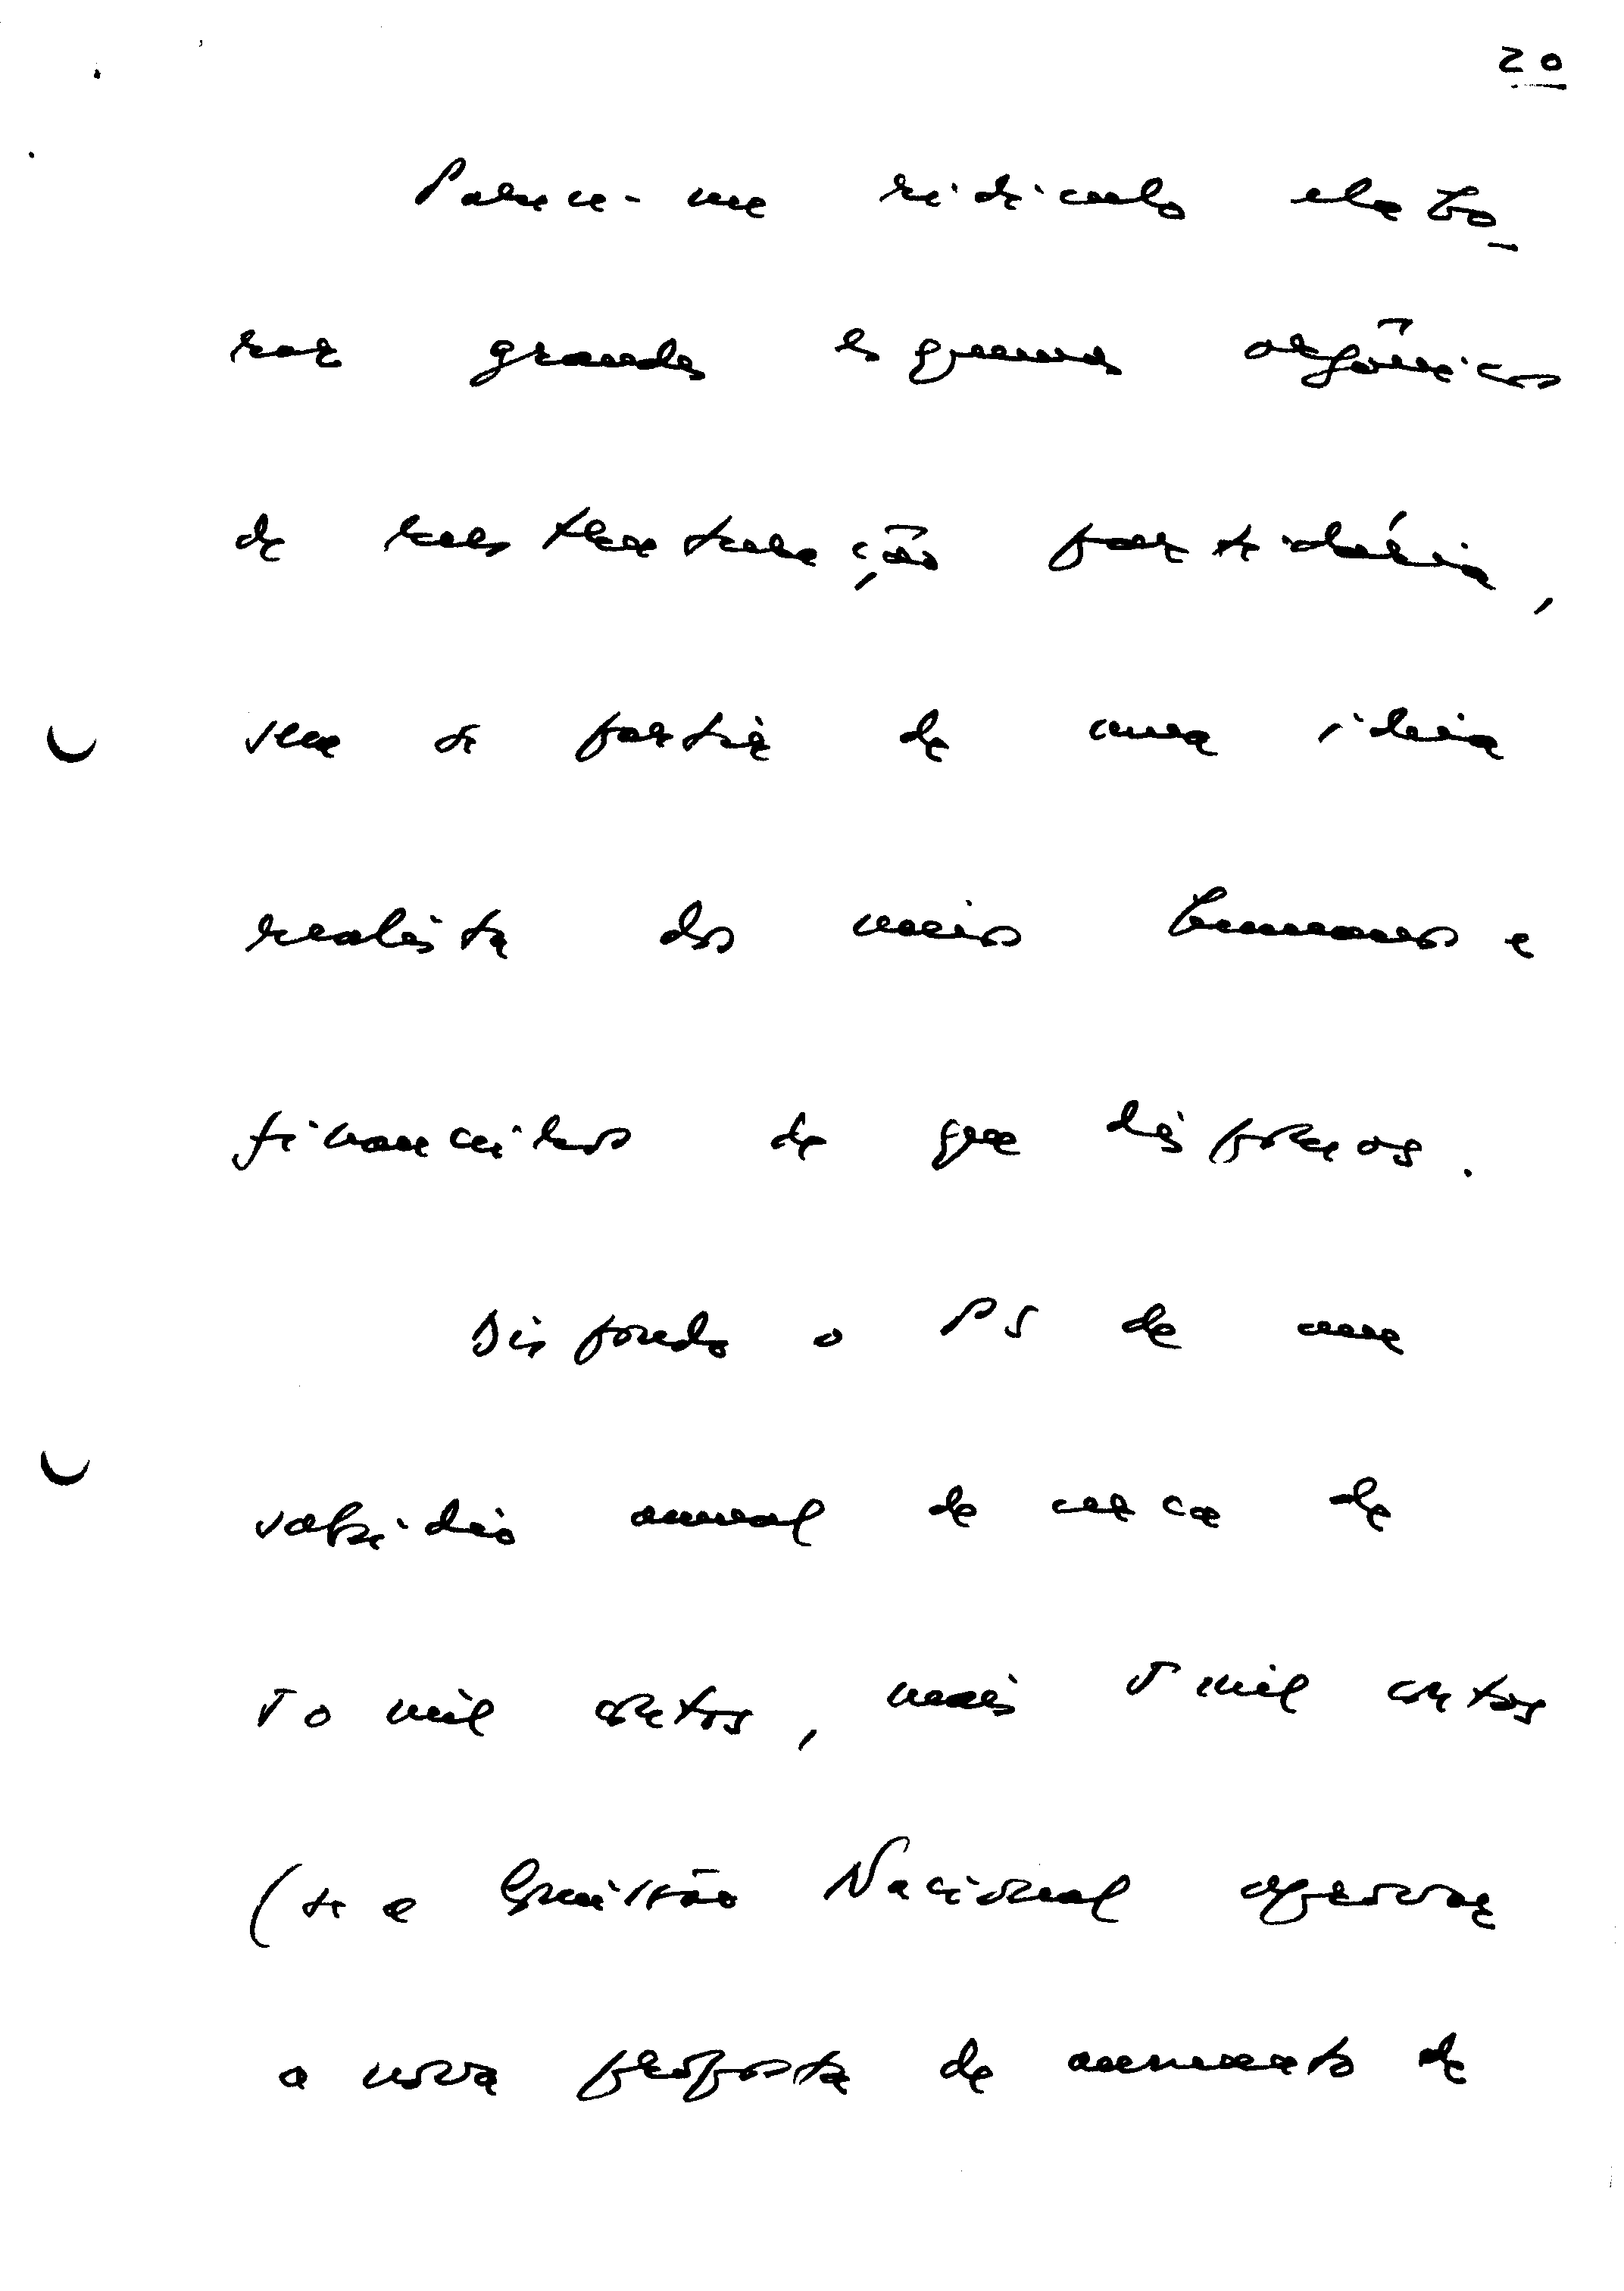 20
Parece-me ridículo elabo-
rar grandes esquemas orgânicos
de reestruturação partidária,
sem se partir de uma ideia
realista dos meios humanos e
financeiros de que dispomos.
Dispondo o PS de um
subsídio anual de cerca de
50 mil contos, mais 5 mil contos
(se a Comissão Nacional aprovar
a nova proposta de aumento de